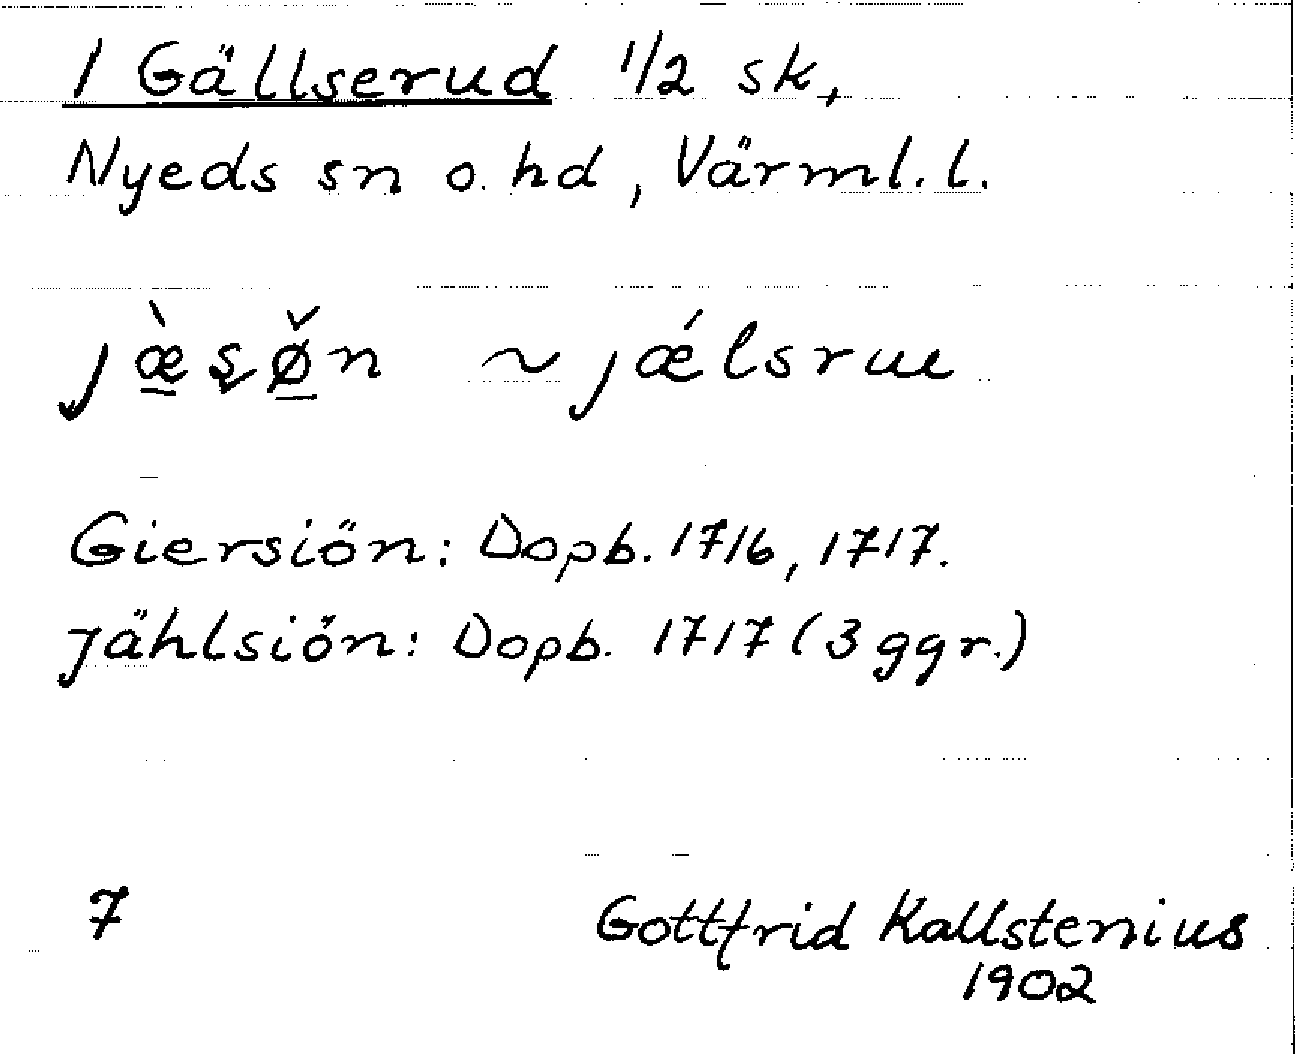 1 Gällserud 1/2 sk,
Nyeds sn o. hd, Värml. l.
jæ̀sø̌n ~ jǽlsrue
Giersiön: Dopb. 1716, 1717.
Jählsiön: Dopb. 1717 (3 ggr.)
7
Gottfrid Kallstenius
1902